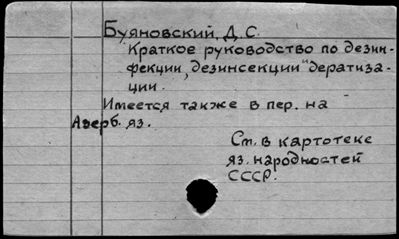 Буяновский, Д. С.
Краткое руководство по дезин-
фекции, дезинсекции и дератиза-
ции.
Имеется также в пер. на
Азерб. яз.
См. в картотеке
яз. народностей
СССР.